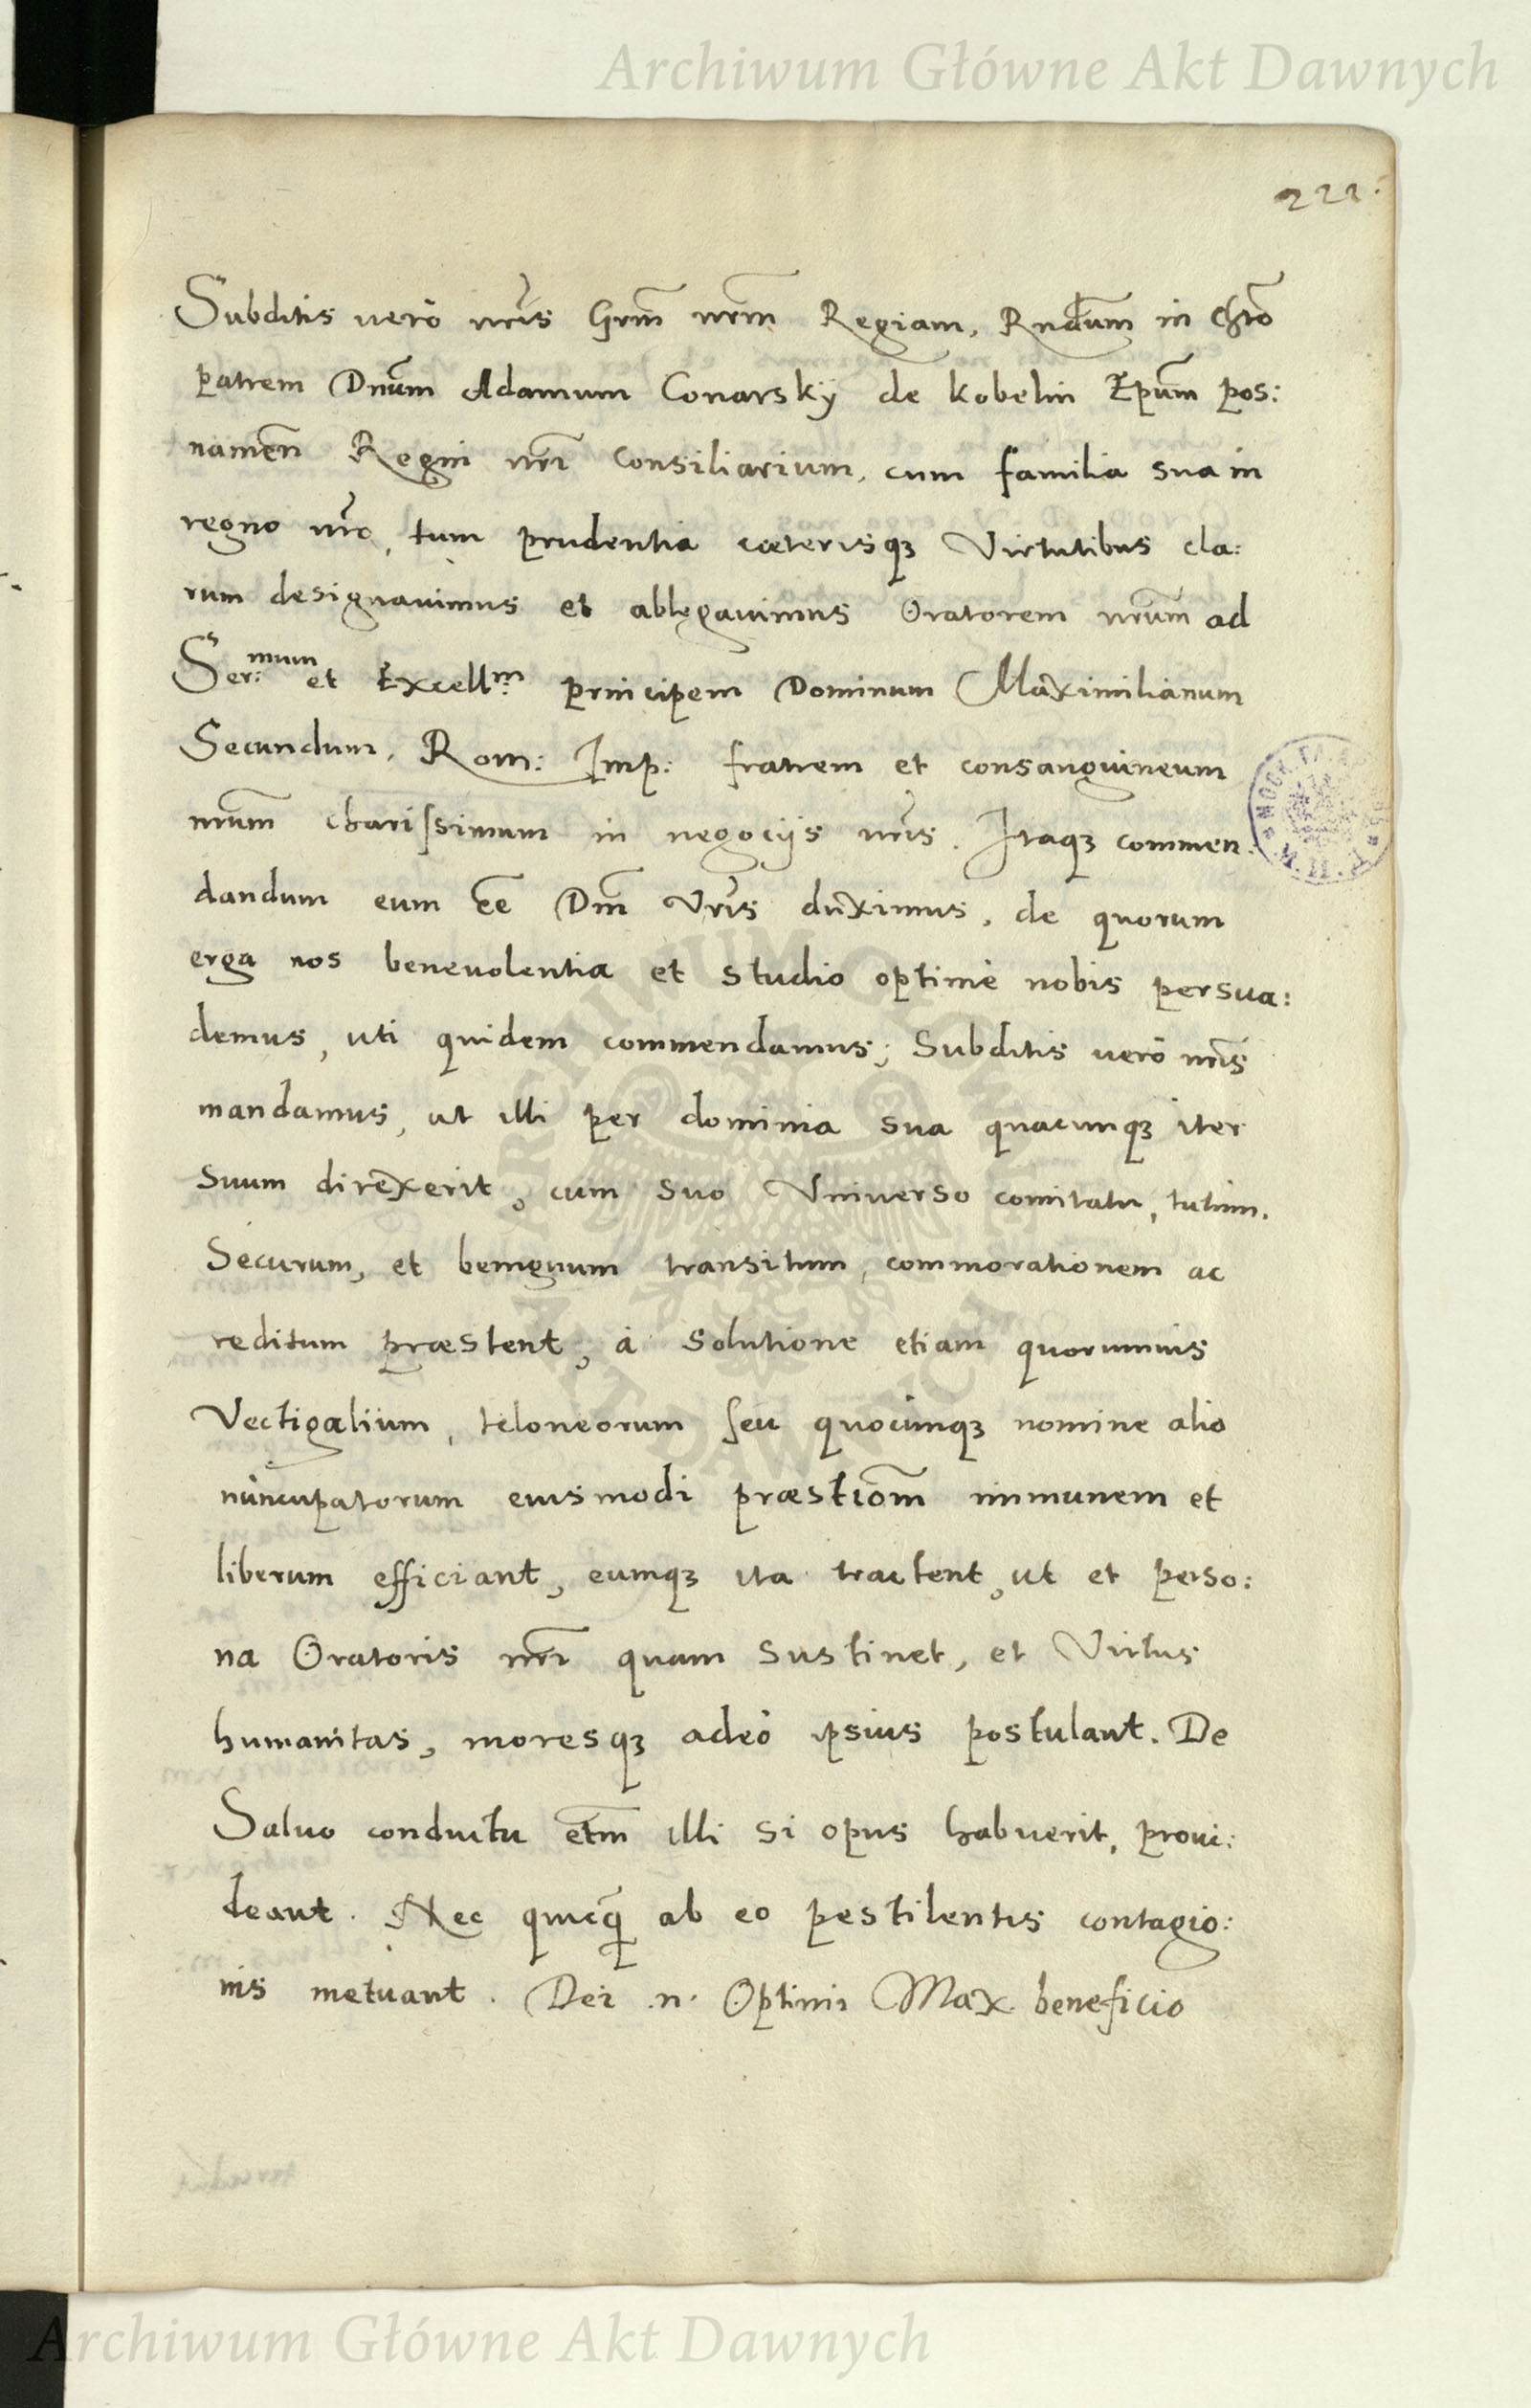 Archiwum Główne Akt Dawnych
221.
Subditis verò nr̃is Grm̃ nrm̃ Regiam, Rnd̃um in Chr̃o
patrem Dnũm Adamum Conarskÿ de Kobelin Ep̃um pos:
namen̄ Regni nr̃i consiliarium, cum familia sua in
regno nr̃o, tum prudentia cæterisqȝ Virtutibus cla:
rum designavimus et ablegavimus Oratorem nr̃um ad
Ser:mum et Excellm: principem Dominum Maximilianum
Secundum, Rom: Imp: fratrem et consanguineum
nr̃um charissimum in negocijs nr̃is. Itaqȝ commen:
dandum eum ẽe Dm̃ Vr̃is duximus, de quorum
erga nos benevolentia et studio optimè nobis persua:
demus, uti quidem commendamus; Subditis verò nr̃is
mandamus, ut illi per dominia sua quacunqȝ iter
suum direxerit, cum suo Universo comitatu, tutum,
Securum, et benignum transitum, commorationem ac
reditum præstent, à solutione etiam quorumvis
Vectigalium, teloneorum seu quocunqȝ nomine alio
nuncupatorum eiusmodi præstiom̃ immunem et
liberum efficiant, eumqȝ ita tractent, ut et perso:
na Oratoris nr̃i quam sustinet, et Virtus
humanitas, moresqȝ adeò ipsius postulant. De
Salvo conductu etm̃ illi si opus habuerit, provi:
deant. Nec quicq̃ ab eo pestilentis contagio:
nis metuant. Dei .n. Optimi Max. beneficio
Archiwum Główne Akt Dawnych